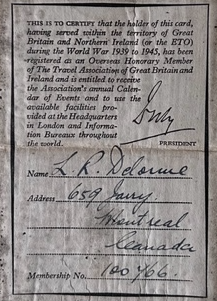 THIS IS TO CERTIFY that the holder of this card,
having served within the territory of Great
Britain and Northern Ireland (or the ETO)
during the World War 1939 to 1945, has been
registered as an Overseas Honorary Member
of The Travel Association of Great Britain and
Ireland and is entitled to receive
the Association's annual Calen-
dar of Events and to use the
available facilities pro-
vided at the Headquarters
in London and Informa-
tion Bureaux throughout
the world.
PRESIDENT
Name L. R. Delorme
Address 659 Jarry,
Montreal
Canada
Membership No. 100766.